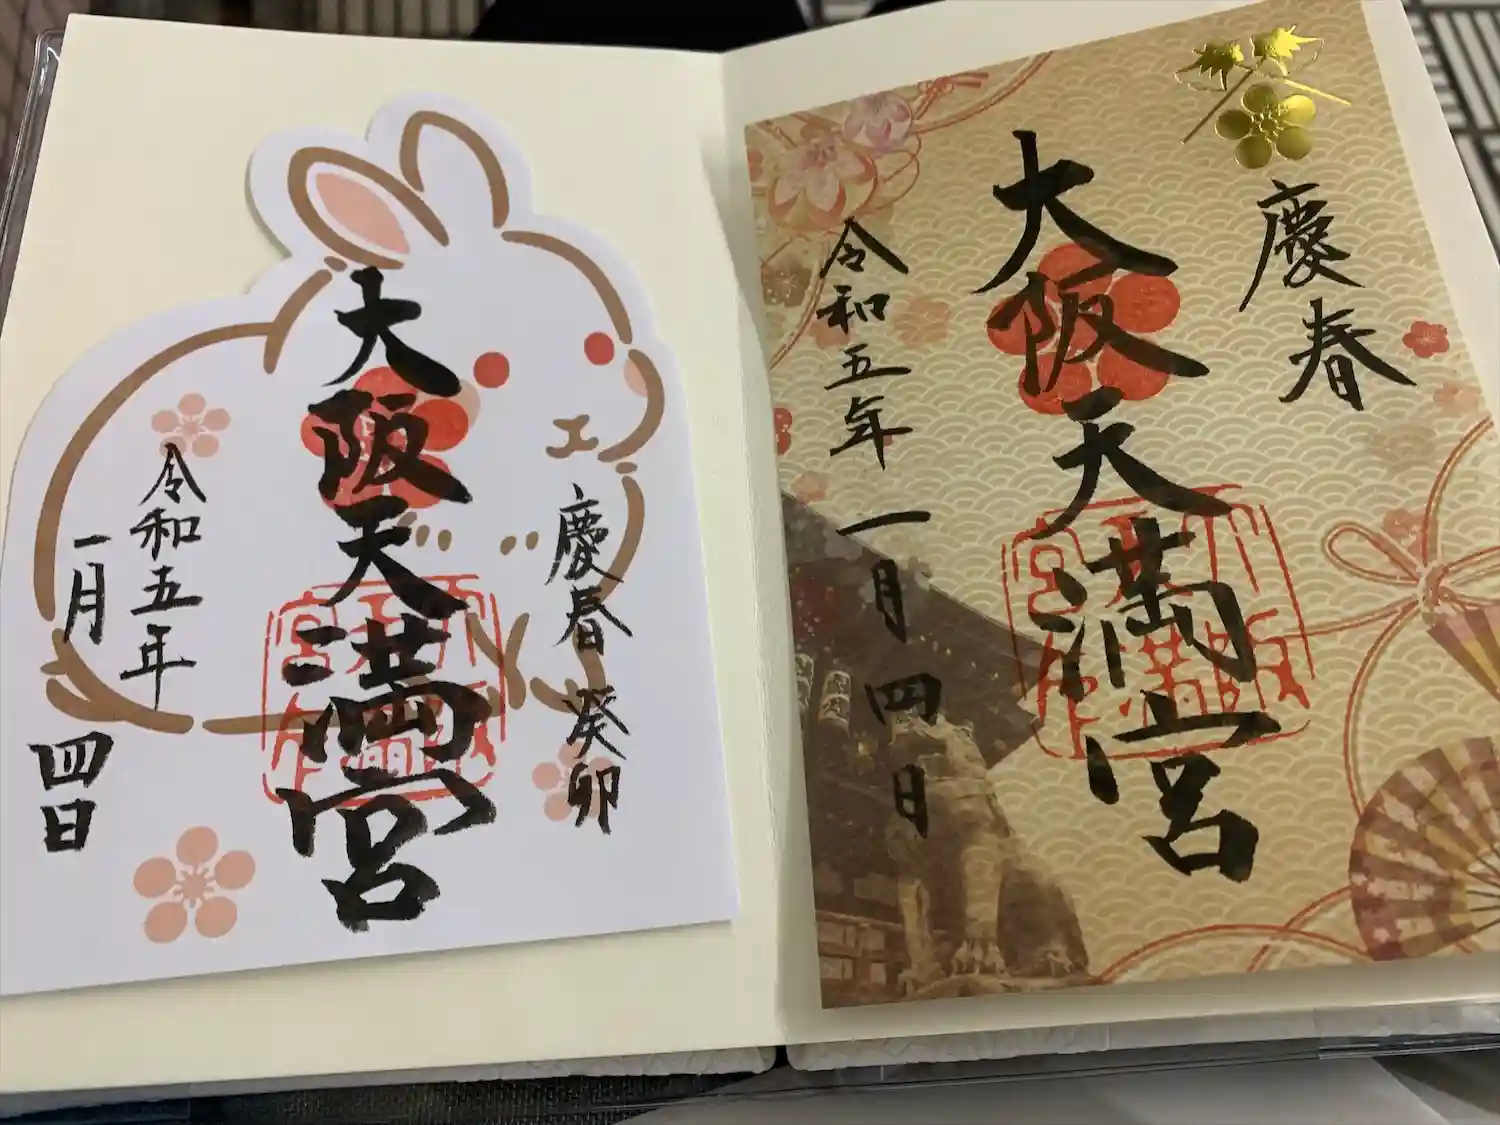 慶春
大阪天満宮
令和五年
一月四日
慶春 癸卯
大阪天満宮
令和五年
一月
四日